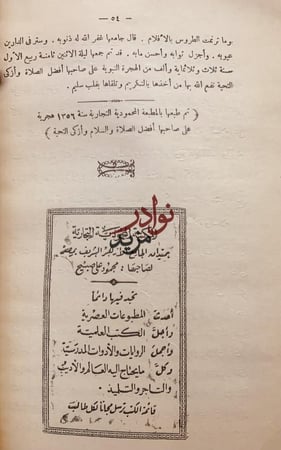 — ٥٤ —
وما ترنمت الطروس بالأقلام . قال جامعها غفر الله له ذنوبه . وستر في الدارين
عيوبه . وأجزل ثوابه وأحسن مآبه . قد تم جمعها ليلة الاثنين ثامنة ربيع الأول
سنة ثلاث وثلثمائة وألف من الهجرة النبوية على صاحبها أفضل الصلاة وأزكى
التحية نفع الله بها من أخذها بالتكريم وتلقاها بقلب سليم .
تم طبعها بالمطبعة المحمودية التجارية سنة ١٣٥٦ هجرية
على صاحبها أفضل الصلاة والسلام وأزكى التحية
نوادر
مزيد
التجارية
بميدان الجامع الأزهر الشريف بمصر
لصاحبها : محمود علي صبيح
تجد فيها دائما
أحدث المطبوعات العصرية
وأجل الكتب العلمية
وأجمل الروايات والأدوات المدرسية
وكل ما يحتاج إليه العالم والأديب
والتاجر والتلميذ .
قائمة الكتب ترسل مجانا لكل طالب